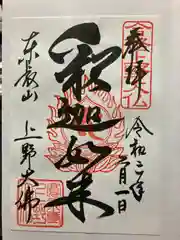 奉拝
令和二年
一月一日
釈迦如来
東叡山
上野大佛